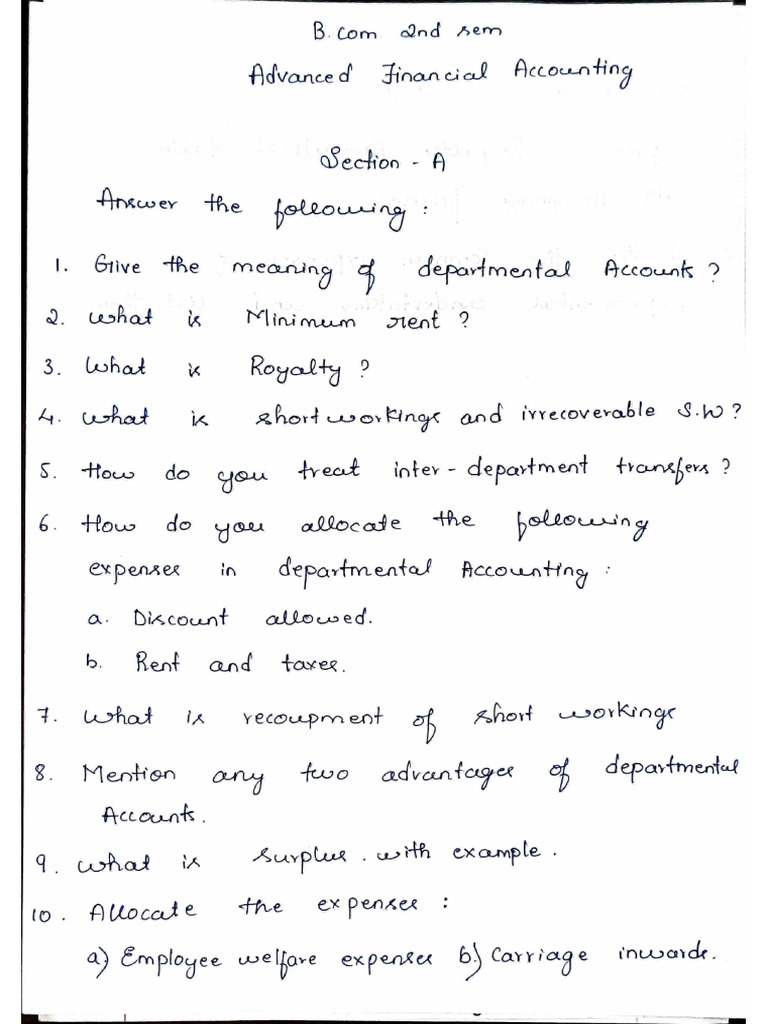 B.com 2nd sem
Advanced Financial Accounting
Section - A
Answer the following :
1. Give the meaning of departmental Accounts ?
2. What is Minimum rent ?
3. What is Royalty ?
4. What is short workings and irrecoverable S.W ?
5. How do you treat inter - department transfers ?
6. How do you allocate the following
expenses in departmental Accounting :
a. Discount allowed.
b. Rent and taxes.
7. What is recoupment of short workings
8. Mention any two advantages of departmental
Accounts.
9. What is surplus. with example.
10. Allocate the expenses :
a) Employee welfare expenses b) Carriage inwards.